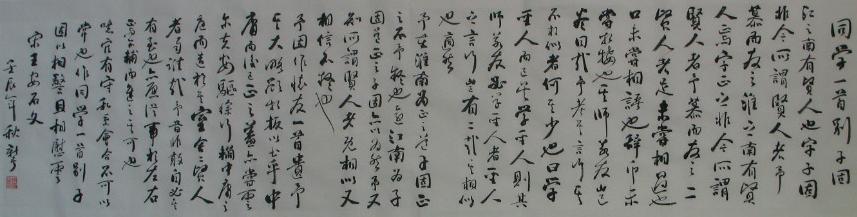 同学一首别子固
江之南有賢人也字子固
非今所謂賢人者予
慕而友之淮之南有賢
人焉字正之非今所謂
賢人者予慕而友之二
賢人者足未嘗相過也
口未嘗相語也辞币未
嘗相接也其師若友岂
尽同哉予考其言行其
不相似者何其少也曰学
圣人而已矣学圣人則其
師若友必学圣人者圣人
之言行岂有二哉其相似
也適然
予在淮南為正之道子固正
之不予疑也还江南為子
固道正之子固亦以為然予又
知所謂賢人者既相似又
相信不疑也
子固作懷友一首遺予
其大略欲相扳以至乎中
庸而後已正之蓋亦尝云
尔夫安驅徐行轥中庸之
庭而造於其堂舍二賢人
者而誰哉予昔非敢自必其
有至也亦愿從事於左右
焉尔辅而進之其可也
噫官有守私有系会合不可以
常也作同学一首别子
固以相警且相慰雲
宋王安石文
壬辰年秋